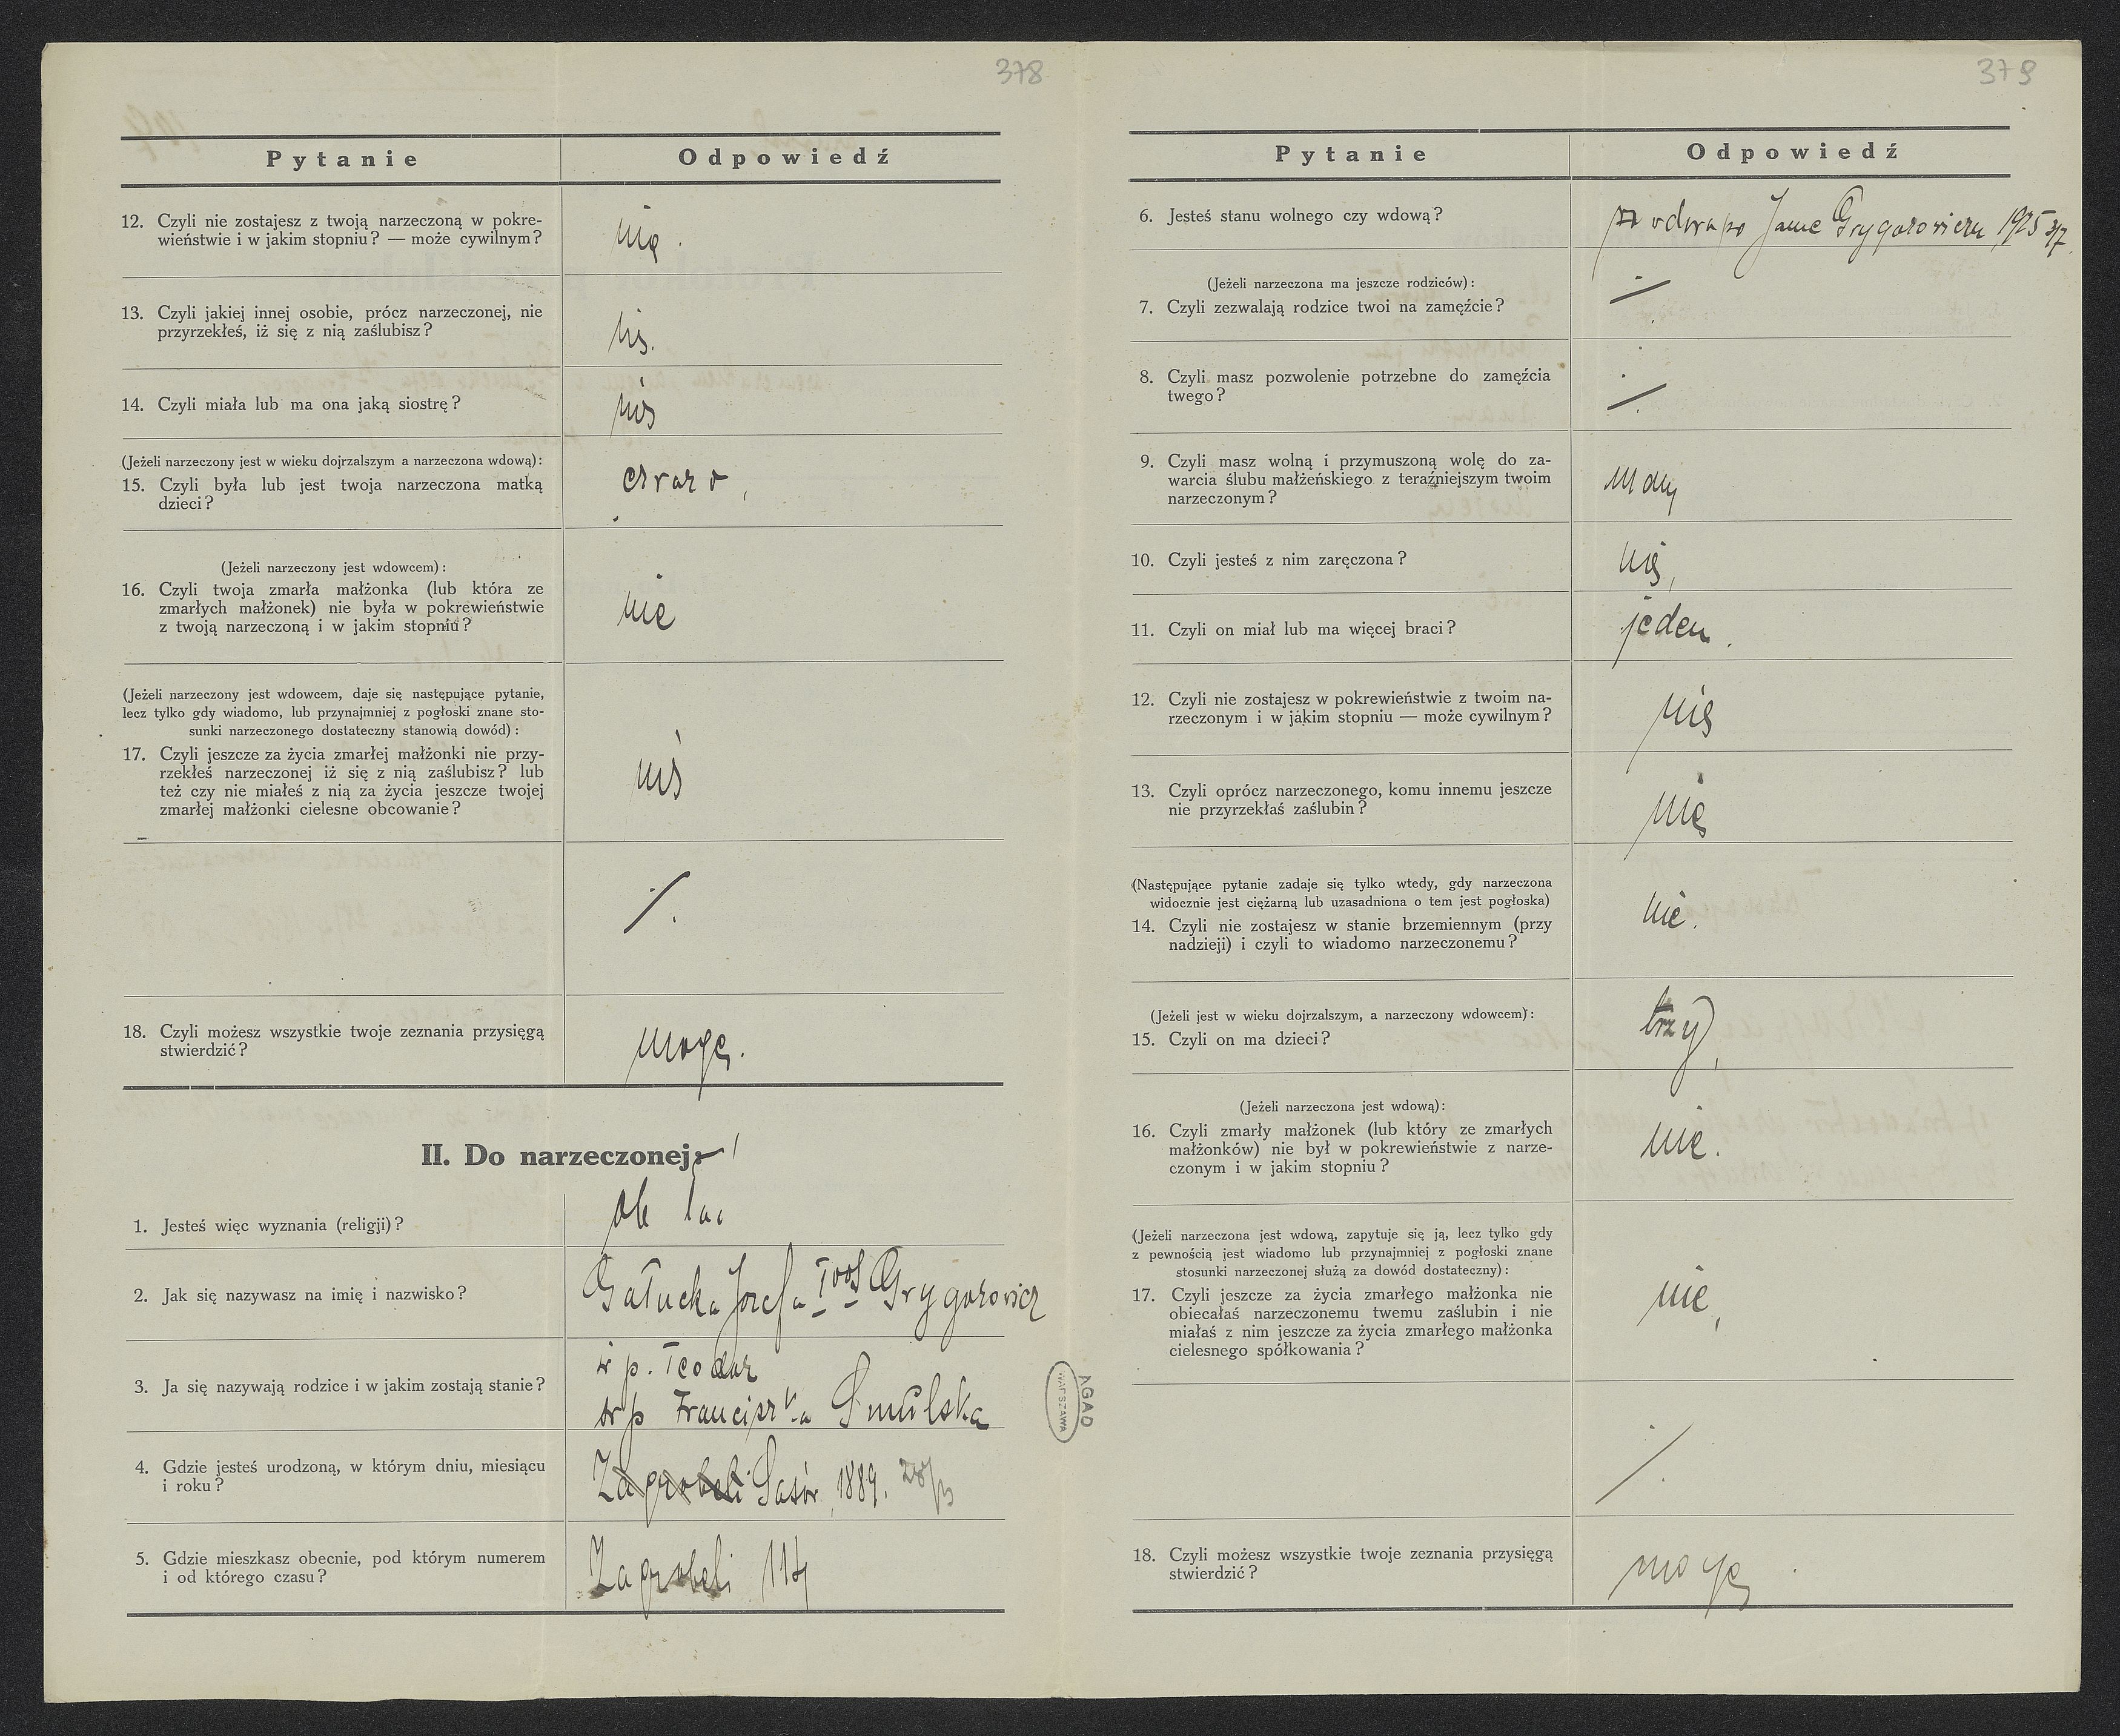 378
Pytanie Odpowiedź
12. Czyli nie zostajesz z twoją narzeczoną w pokre-
wieństwie i w jakim stopniu? — może cywilnym?
nie.
13. Czyli jakiej innej osobie, prócz narzeczonej, nie
przyrzekłeś, iż się z nią zaślubisz?
nie.
14. Czyli miała lub ma ona jaką siostrę?
nie
(Jeżeli narzeczony jest w wieku dojrzalszym a narzeczona wdową):
15. Czyli była lub jest twoja narzeczona matką
dzieci?
(Jeżeli narzeczony jest wdowcem):
16. Czyli twoja zmarła małżonka (lub która ze
zmarłych małżonek) nie była w pokrewieństwie
z twoją narzeczoną i w jakim stopniu?
nie
(Jeżeli narzeczony jest wdowcem, daje się następujące pytanie,
lecz tylko gdy wiadomo, lub przynajmniej z pogłoski znane sto-
sunki narzeczonego dostateczny stanowią dowód):
17. Czyli jeszcze za życia zmarłej małżonki nie przy-
rzekłeś narzeczonej iż się z nią zaślubisz? lub
też czy nie miałeś z nią za życia jeszcze twojej
zmarłej małżonki cielesne obcowanie?
nie
18. Czyli możesz wszystkie twoje zeznania przysięgą
stwierdzić?
mogę.
II. Do narzeczonej:
1. Jesteś więc wyznania (religji)?
2. Jak się nazywasz na imię i nazwisko?
Gałucka Józefa Grygorowicz
3. Ja się nazywają rodzice i w jakim zostają stanie?
ś p. Teodor
ś p Franciszka Smulska
4. Gdzie jesteś urodzoną, w którym dniu, miesiącu
i roku?
Zagrobeli Sasów 1889.
5. Gdzie mieszkasz obecnie, pod którym numerem
i od którego czasu?
Zagrobeli 114
AGAD
WARSZAWA
379
Pytanie Odpowiedź
6. Jesteś stanu wolnego czy wdową?
wdowa po Janie Grygorowiczu 1925 3/7
(Jeżeli narzeczona ma jeszcze rodziców):
7. Czyli zezwalają rodzice twoi na zamęźcie?
8. Czyli masz pozwolenie potrzebne do zamęźcia
twego?
9. Czyli masz wolną i przymuszoną wolę do za-
warcia ślubu małżeńskiego z teraźniejszym twoim
narzeczonym?
10. Czyli jesteś z nim zaręczona?
nie,
11. Czyli on miał lub ma więcej braci?
jeden.
12. Czyli nie zostajesz w pokrewieństwie z twoim na-
rzeczonym i w jakim stopniu — może cywilnym?
nie
13. Czyli oprócz narzeczonego, komu innemu jeszcze
nie przyrzekłaś zaślubin?
nie
(Następujące pytanie zadaje się tylko wtedy, gdy narzeczona
widocznie jest ciężarną lub uzasadniona o tem jest pogłoska)
14. Czyli nie zostajesz w stanie brzemiennym (przy
nadzieji) i czyli to wiadomo narzeczonemu?
nie.
(Jeżeli jest w wieku dojrzalszym, a narzeczony wdowcem):
15. Czyli on ma dzieci?
trzy,
(Jeżeli narzeczona jest wdową):
16. Czyli zmarły małżonek (lub który ze zmarłych
małżonków) nie był w pokrewieństwie z narze-
czonym i w jakim stopniu?
nie.
(Jeżeli narzeczona jest wdową, zapytuje się ją, lecz tylko gdy
z pewnością jest wiadomo lub przynajmniej z pogłoski znane
stosunki narzeczonej służą za dowód dostateczny):
17. Czyli jeszcze za życia zmarłego małżonka nie
obiecałaś narzeczonemu twemu zaślubin i nie
miałaś z nim jeszcze za życia zmarłego małżonka
cielesnego spółkowania?
nie,
18. Czyli możesz wszystkie twoje zeznania przysięgą
stwierdzić?
mogę